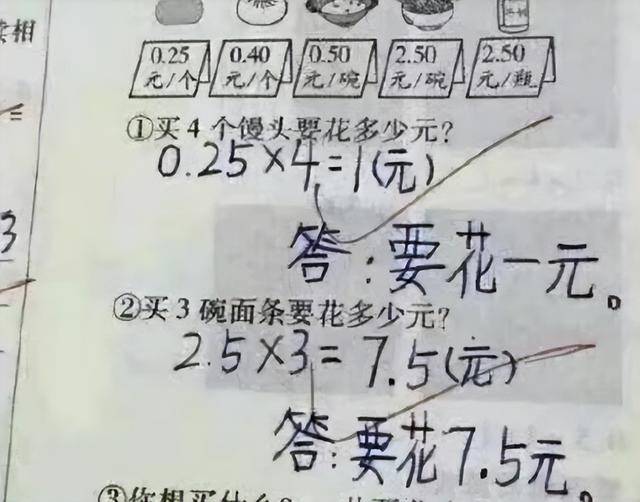 0.25 0.40 0.50 2.50 2.50
元/个 元/个 元/碗 元/碗 元/瓶
①买4个馒头要花多少元?
0.25×4=1(元)
答:要花一元。
②买3碗面条要花多少元?
2.5×3=7.5(元)
答:要花7.5元。
③你想买什么?